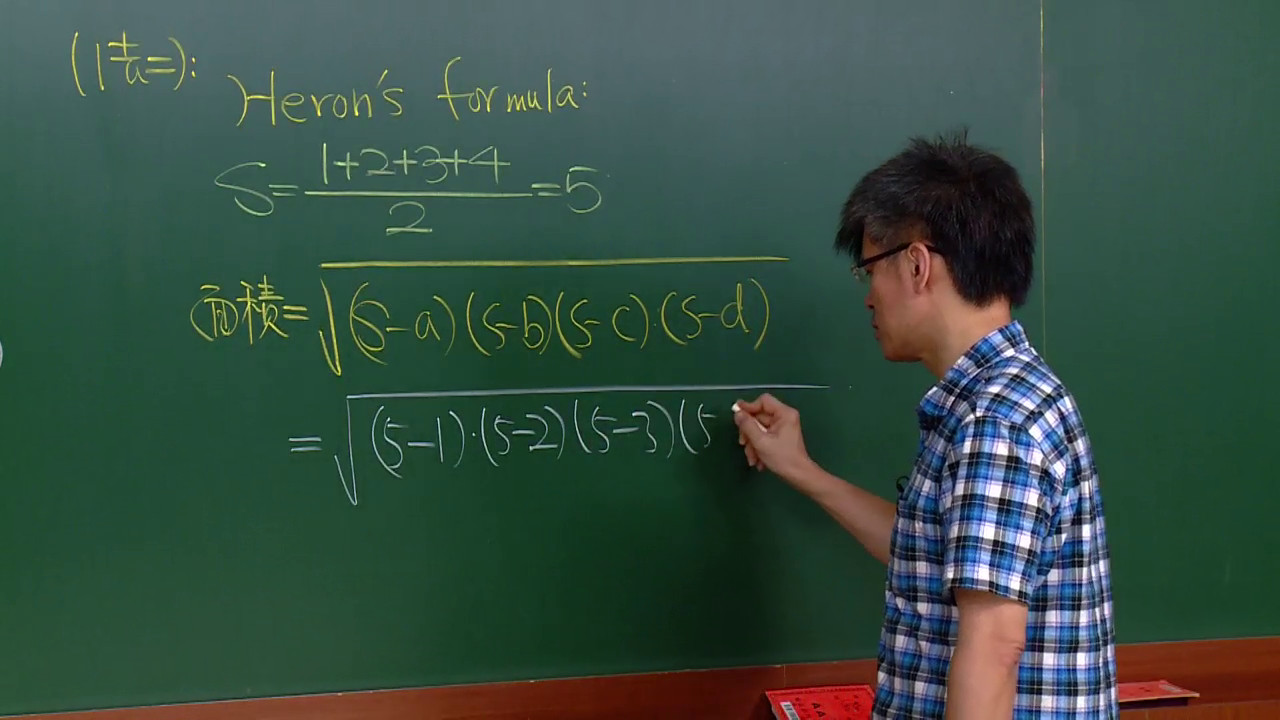 Heron's formula:
S=\frac{1+2+3+4}{2}=5
面積=\sqrt{(S-a)(S-b)(S-c)\cdot(S-d)}
=\sqrt{(5-1)\cdot(5-2)(5-3)(5}
AA